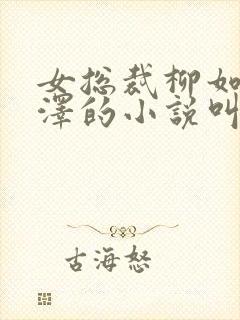 女总裁柳如
泽的小说叫
古海怒